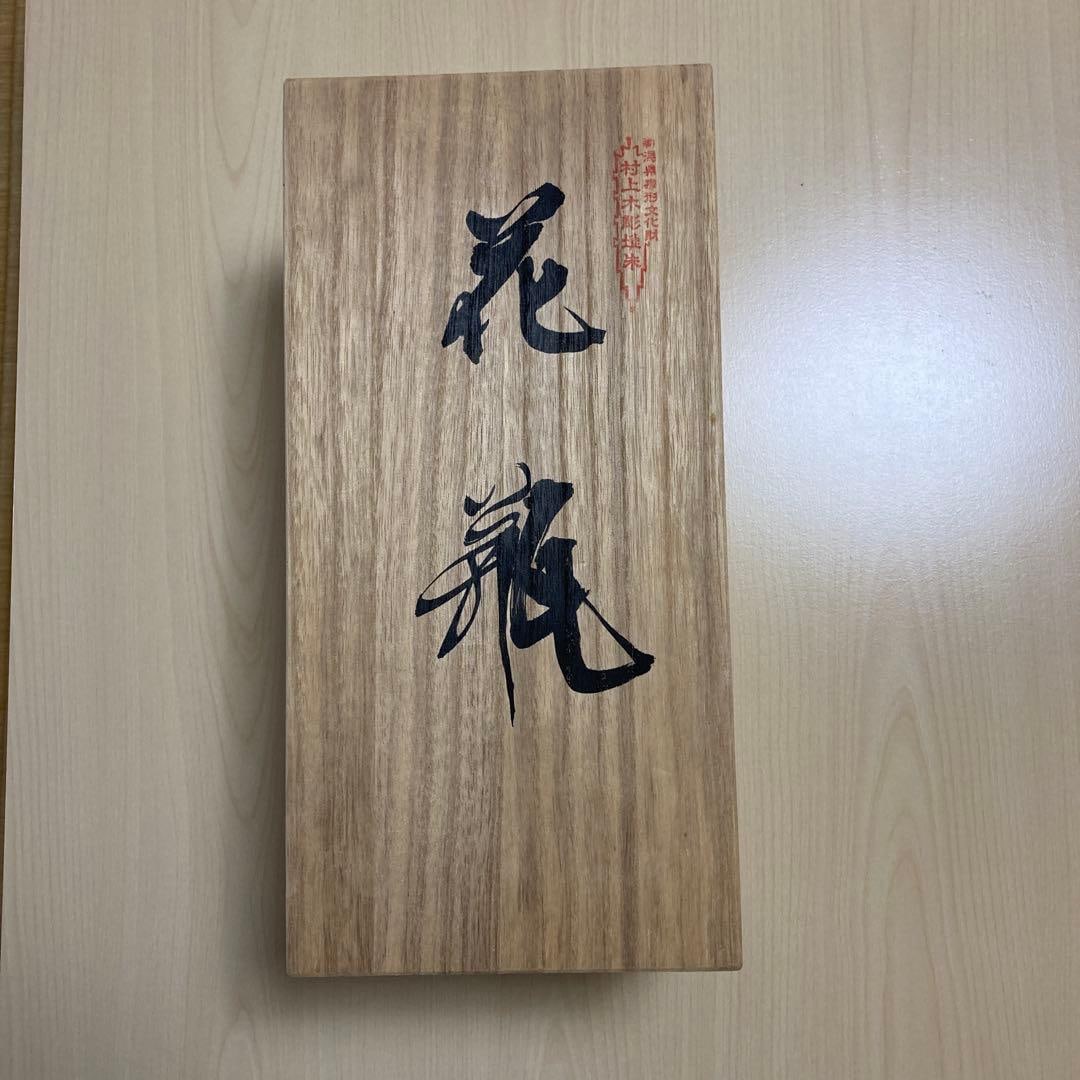 新潟県無形文化財
村上木彫堆朱
花瓶